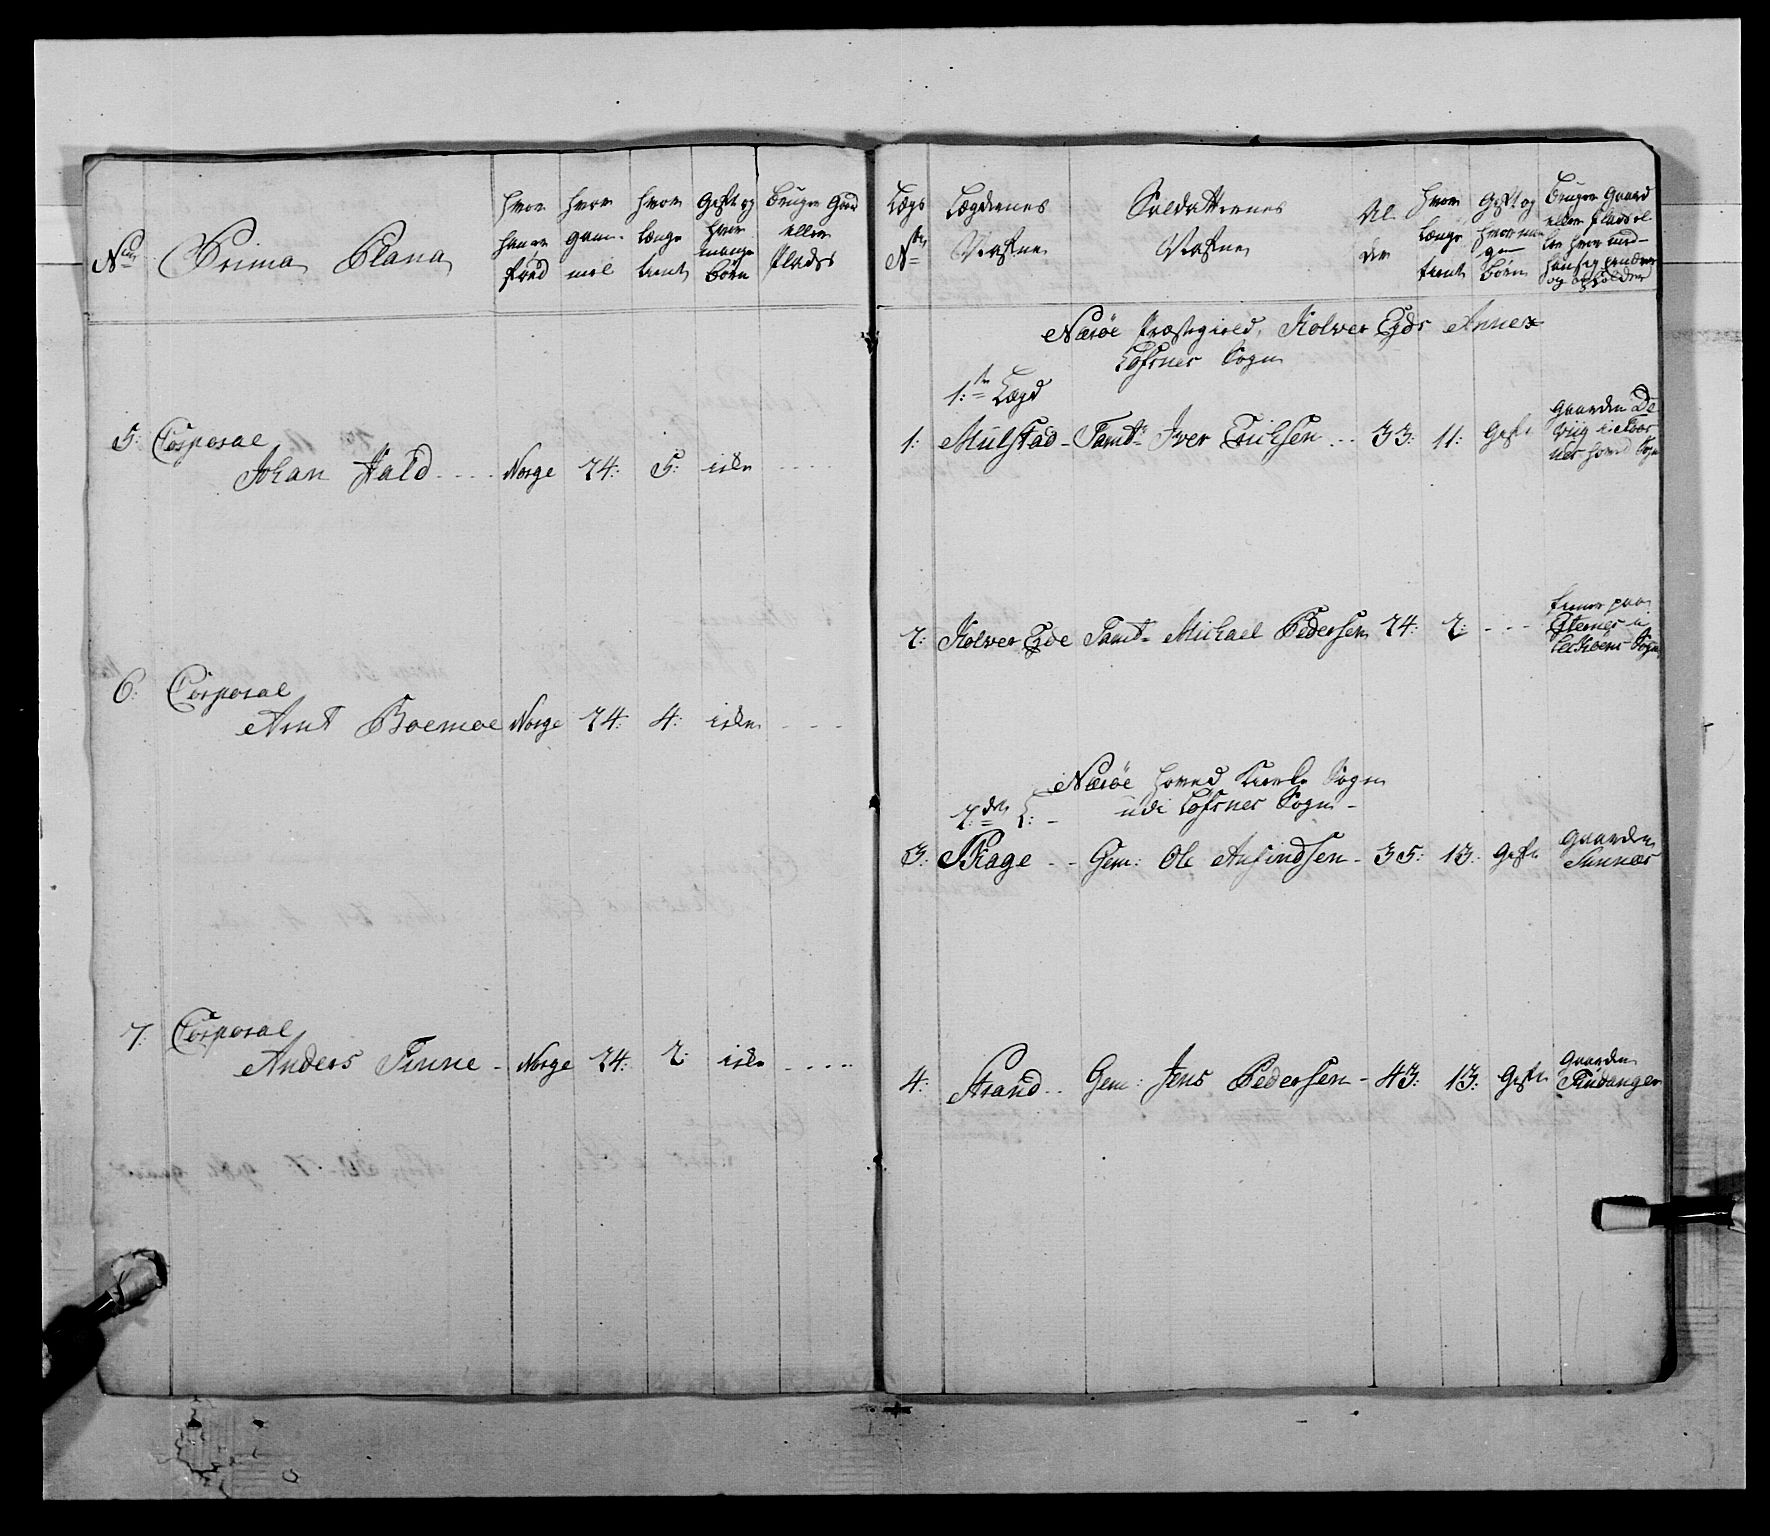 No
Prima Plana
hvor han er fød
hvor gam- mel
hvor længe tient
Gift og hvor mange børn
Bruger Gaard eller Plads
5: Corporal
Johan Hald .... Norge 24: 5: icke ....
6: Corporal
Arnt Boemoe Norge 24: 4: icke ....
7: Corporal
Anders Finne - Norge 24: 2: icke ....
Lægs No
Lægdernes Nafne
Soldatternes Nafne
Al der
hvor længe tient
Gift og hvor man- ge børn
Bruger Gaard eller Plads el- ler hvor med han sig ernærer og opholder
Nærøe Præstegield, Kolver Eyds Annex
Lofsnes Sogn
1:ste Lægd
1: Mulstad - Tamb: Iver Erichsen ... 33: 11: Gift Gaarden
2: Kolver Eyde Tamb: Michael Pedersen 24: 2: ... tiener paa
Sogn
Nærøe hoved Kirke Sogn
2:den L: - udi Lofsnes Sogn -
3: Skage - - Gem: Ole Amundsen - 35: 13: Gift Gaarden
4: Strand .. Gem: Jens Pedersen - 43: 13: Gift Gaarden
Findanger